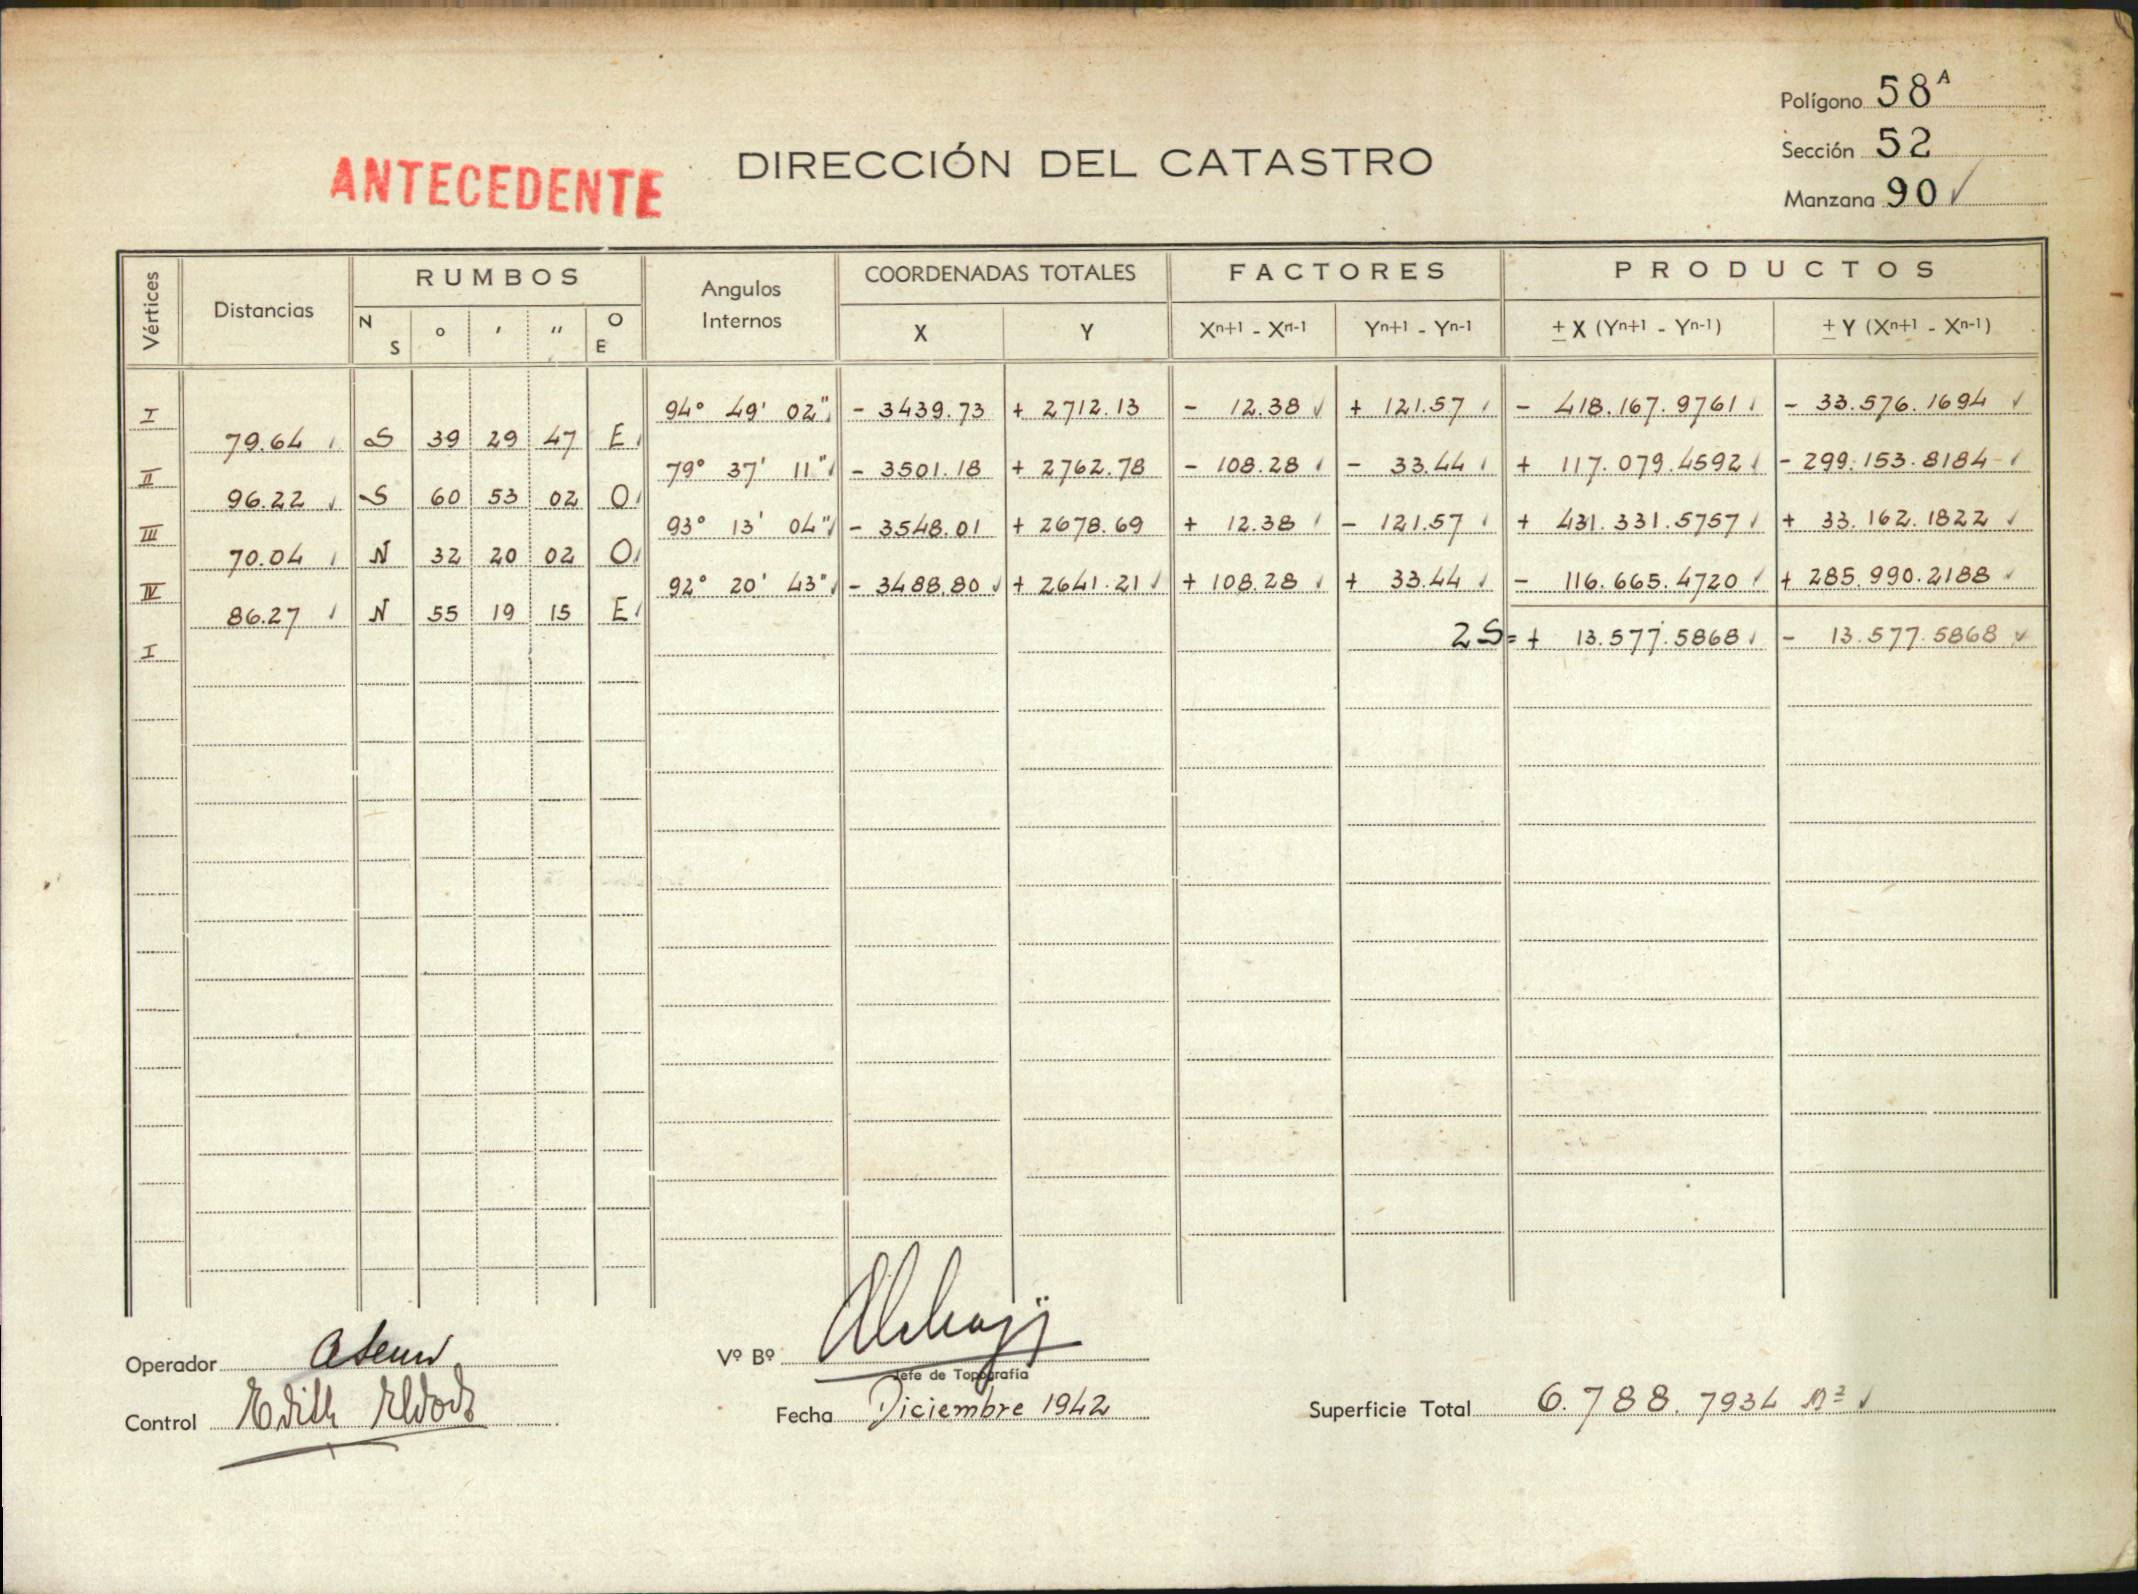 Polígono 58ᴬ
Sección 52
Manzana 90 ✓
ANTECEDENTE
DIRECCIÓN DEL CATASTRO
Vértices Distancias RUMBOS Angulos Internos COORDENADAS TOTALES FACTORES PRODUCTOS
N S ° ′ ″ O E X Y Xⁿ⁺¹ - Xⁿ⁻¹ Yⁿ⁺¹ - Yⁿ⁻¹ ± X (Yⁿ⁺¹ - Yⁿ⁻¹) ± Y (Xⁿ⁺¹ - Xⁿ⁻¹)
I 94° 49' 02" ✓ - 3439.73 + 2712.13 - 12.38 ✓ + 121.57 ✓ - 418.167.9761 ✓ - 33.576.1694 ✓
79.64 ✓ S 39 29 47 E ✓
II 79° 37' 11" ✓ - 3501.18 + 2762.78 - 108.28 ✓ - 33.44 ✓ + 117.079.4592 ✓ - 299.153.8184 ✓
96.22 ✓ S 60 53 02 O ✓
III 93° 13' 04" ✓ - 3548.01 + 2678.69 + 12.38 ✓ - 121.57 ✓ + 431.331.5757 ✓ + 33.162.1822 ✓
70.04 ✓ N 32 20 02 O ✓
IV 92° 20' 43" ✓ - 3488.80 ✓ + 2641.21 ✓ + 108.28 ✓ + 33.44 ✓ - 116.665.4720 ✓ + 285.990.2188 ✓
86.27 ✓ N 55 19 15 E ✓
I 2S = + 13.577.5868 ✓ - 13.577.5868 ✓
Operador
Vº Bº
Jefe de Topografía
Control Edith
Fecha Diciembre 1942
Superficie Total 6.788.7934 M² ✓